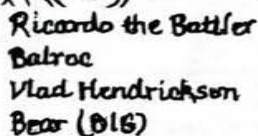 Ricardo the Battler
Balroc
Vlad Hendrickson
Bear (BIG)